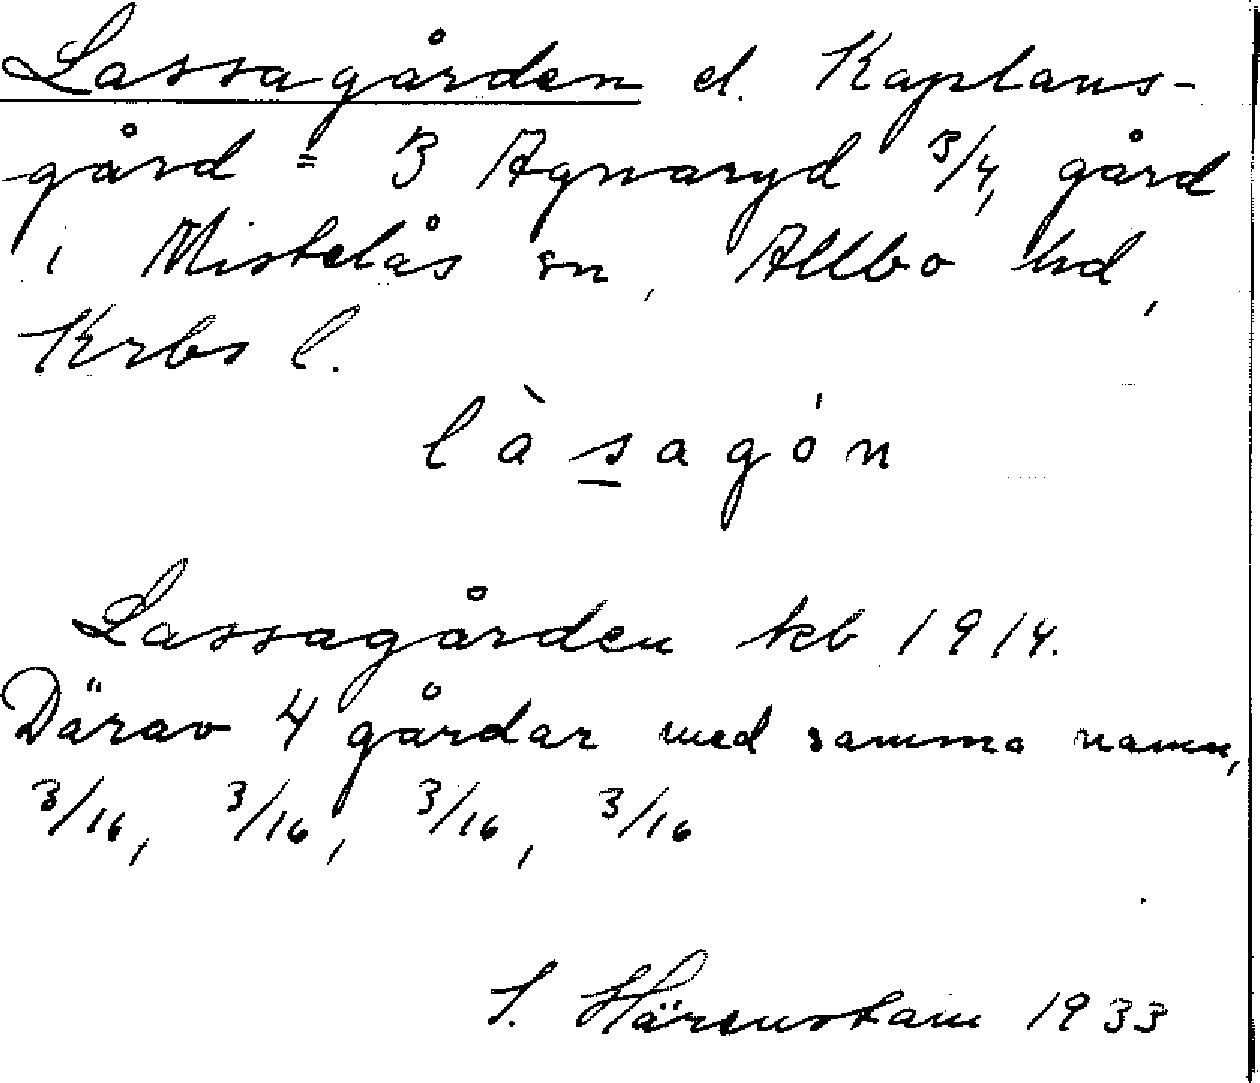 Lassagården el. Kaplans-
gård = 3 Agnaryd 3/4, gård
i Mistelås sn, Allbo hd,
Krbs l.
làsagón
Lassagården kb 1914.
Därav 4 gårdar med samma namn,
3/16, 3/16, 3/16, 3/16
S. Härenstam 1933